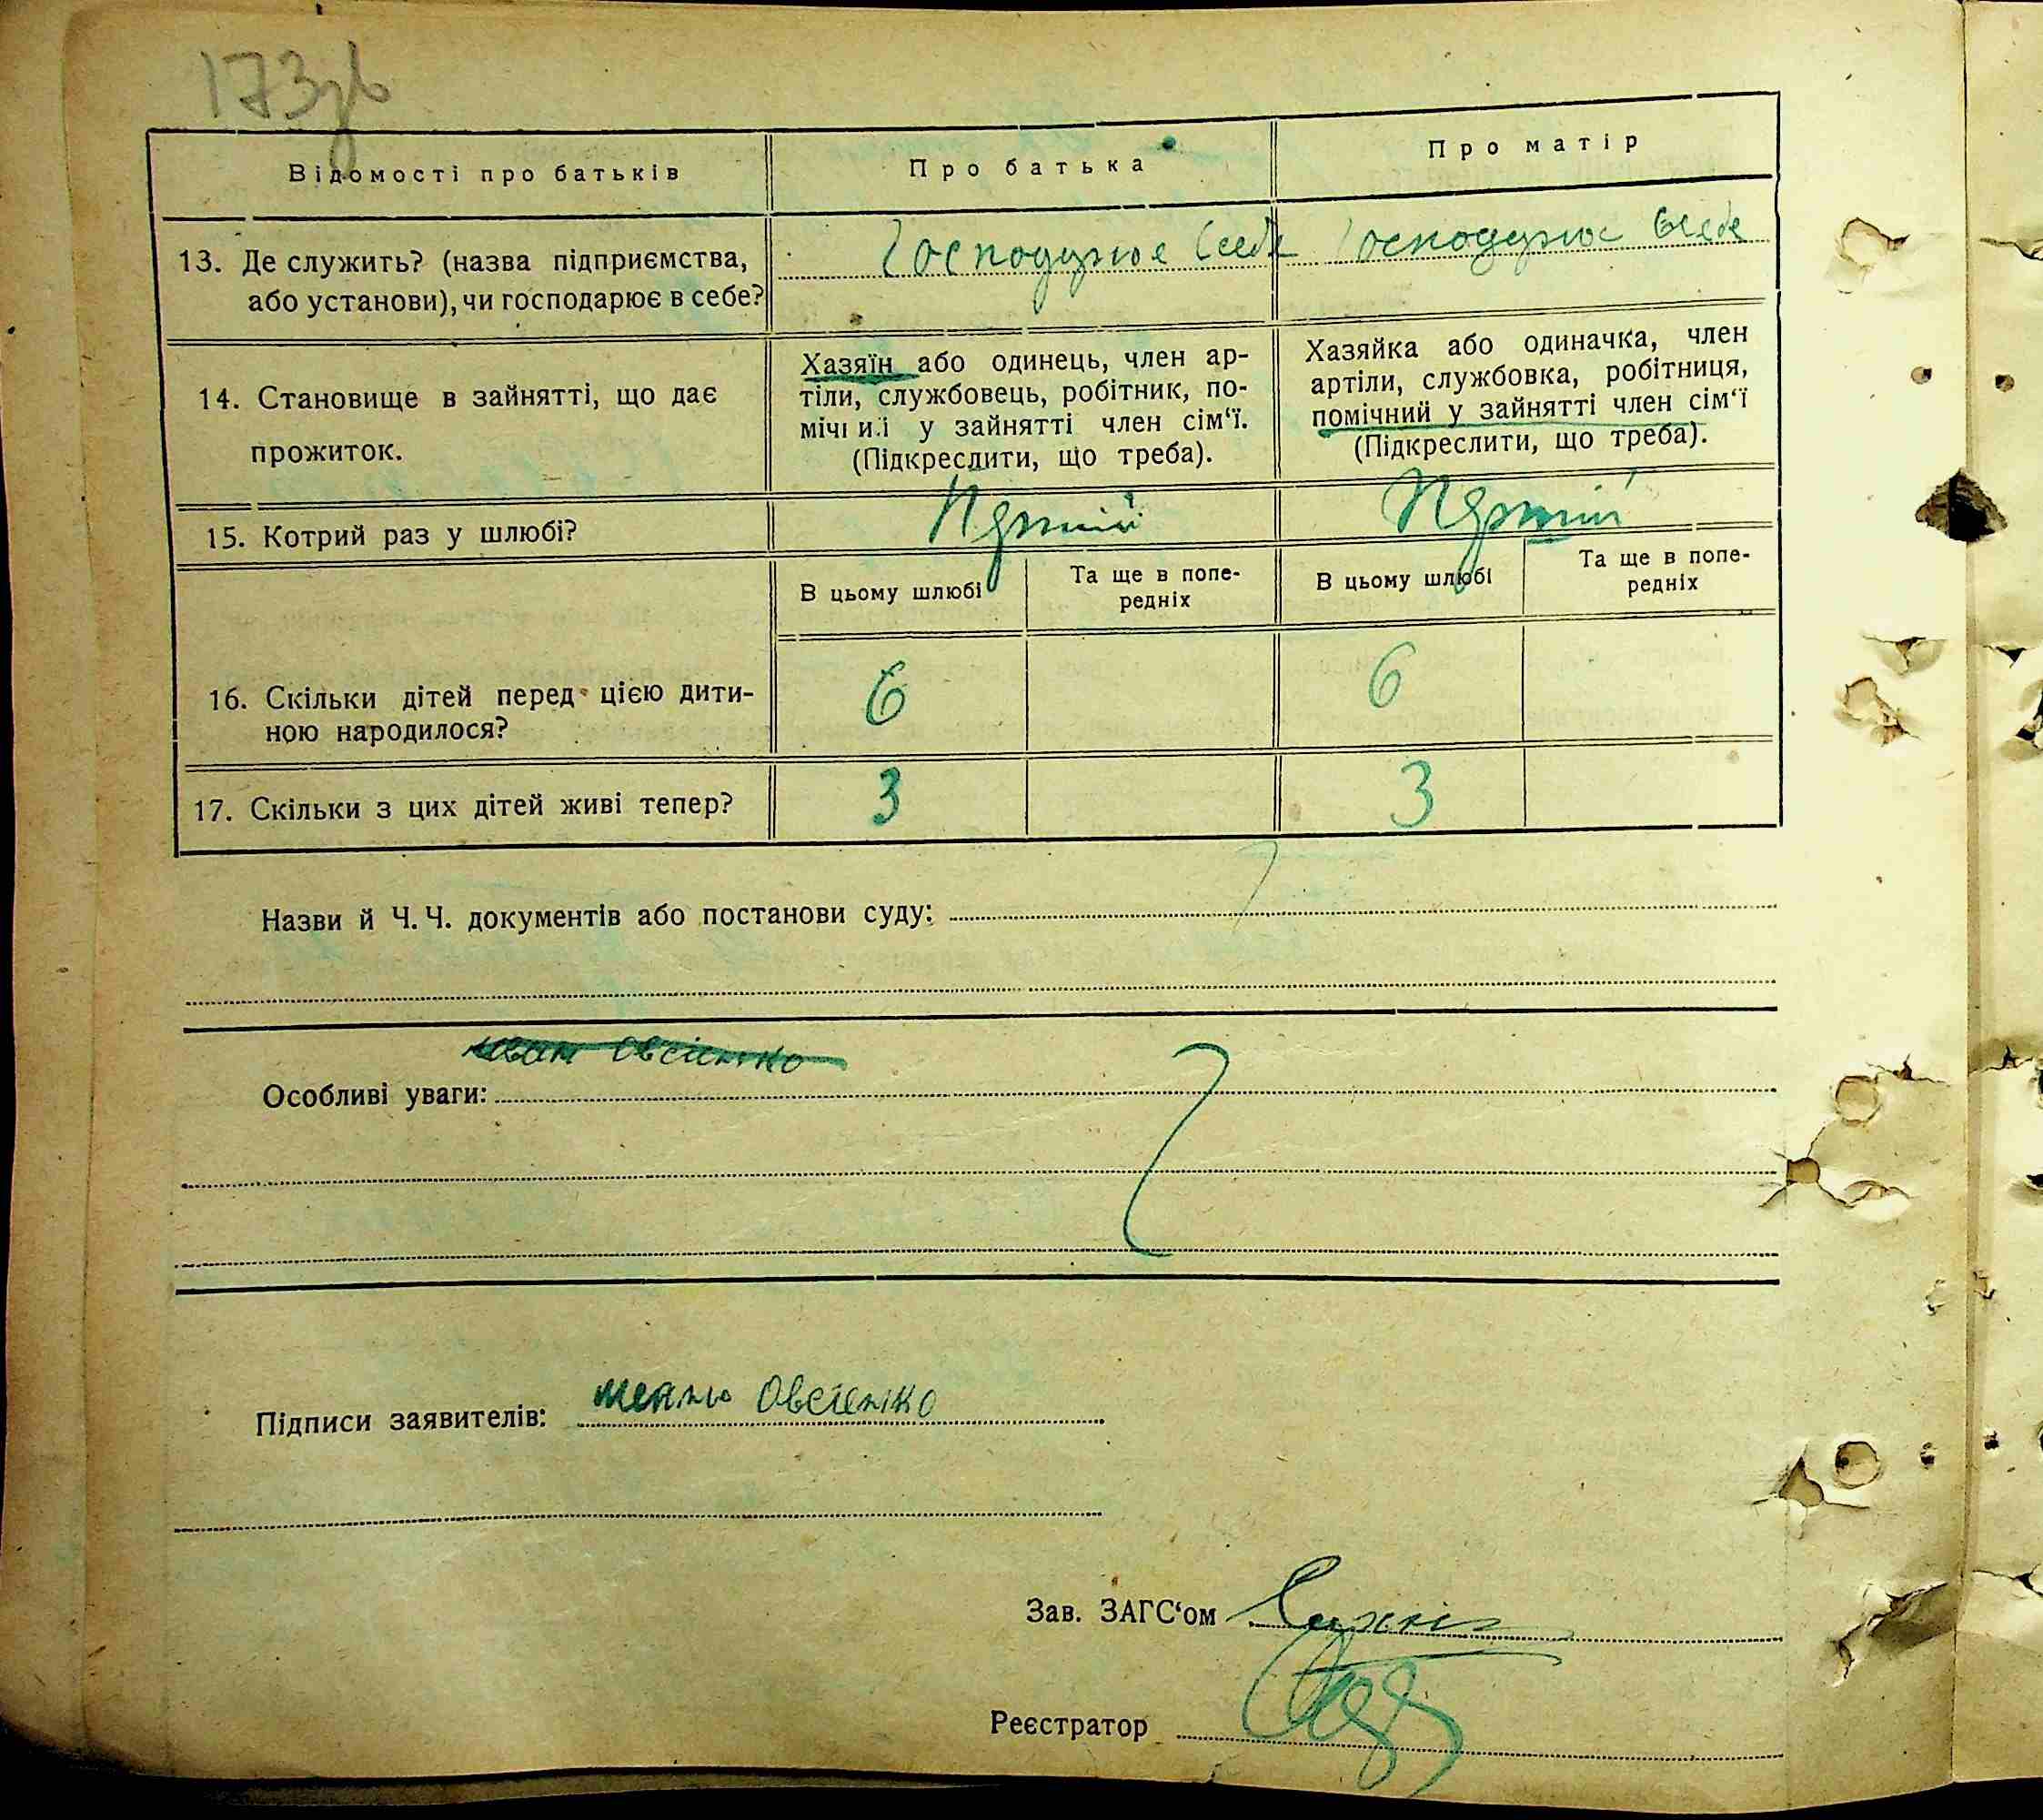 173зв
Відомості про батьків
Про батька
Про матір
13. Де служить? (назва підприємства,
або установи), чи господарює в себе?
Господарює в себе
Господарює в себе
14. Становище в зайнятті, що дає
прожиток.
Хазяїн або одинець, член ар-
тіли, службовець, робітник, по-
мічний у зайнятті член сім‘ї.
(Підкреслити, що треба).
Хазяйка або одиначка, член
артіли, службовка, робітниця,
помічний у зайнятті член сім‘ї
(Підкреслити, що треба).
15. Котрий раз у шлюбі?
Перший
Перший
В цьому шлюбі
Та ще в попе-
редніх
В цьому шлюбі
Та ще в попе-
редніх
16. Скільки дітей перед цією дити-
ною народилося?
6
6
17. Скільки з цих дітей живі тепер?
3
3
Назви й Ч. Ч. документів або постанови суду:
Овсієнко
Особливі уваги:
Підписи заявителів: Овсієнко
Зав. ЗАГС‘ом
Реєстратор